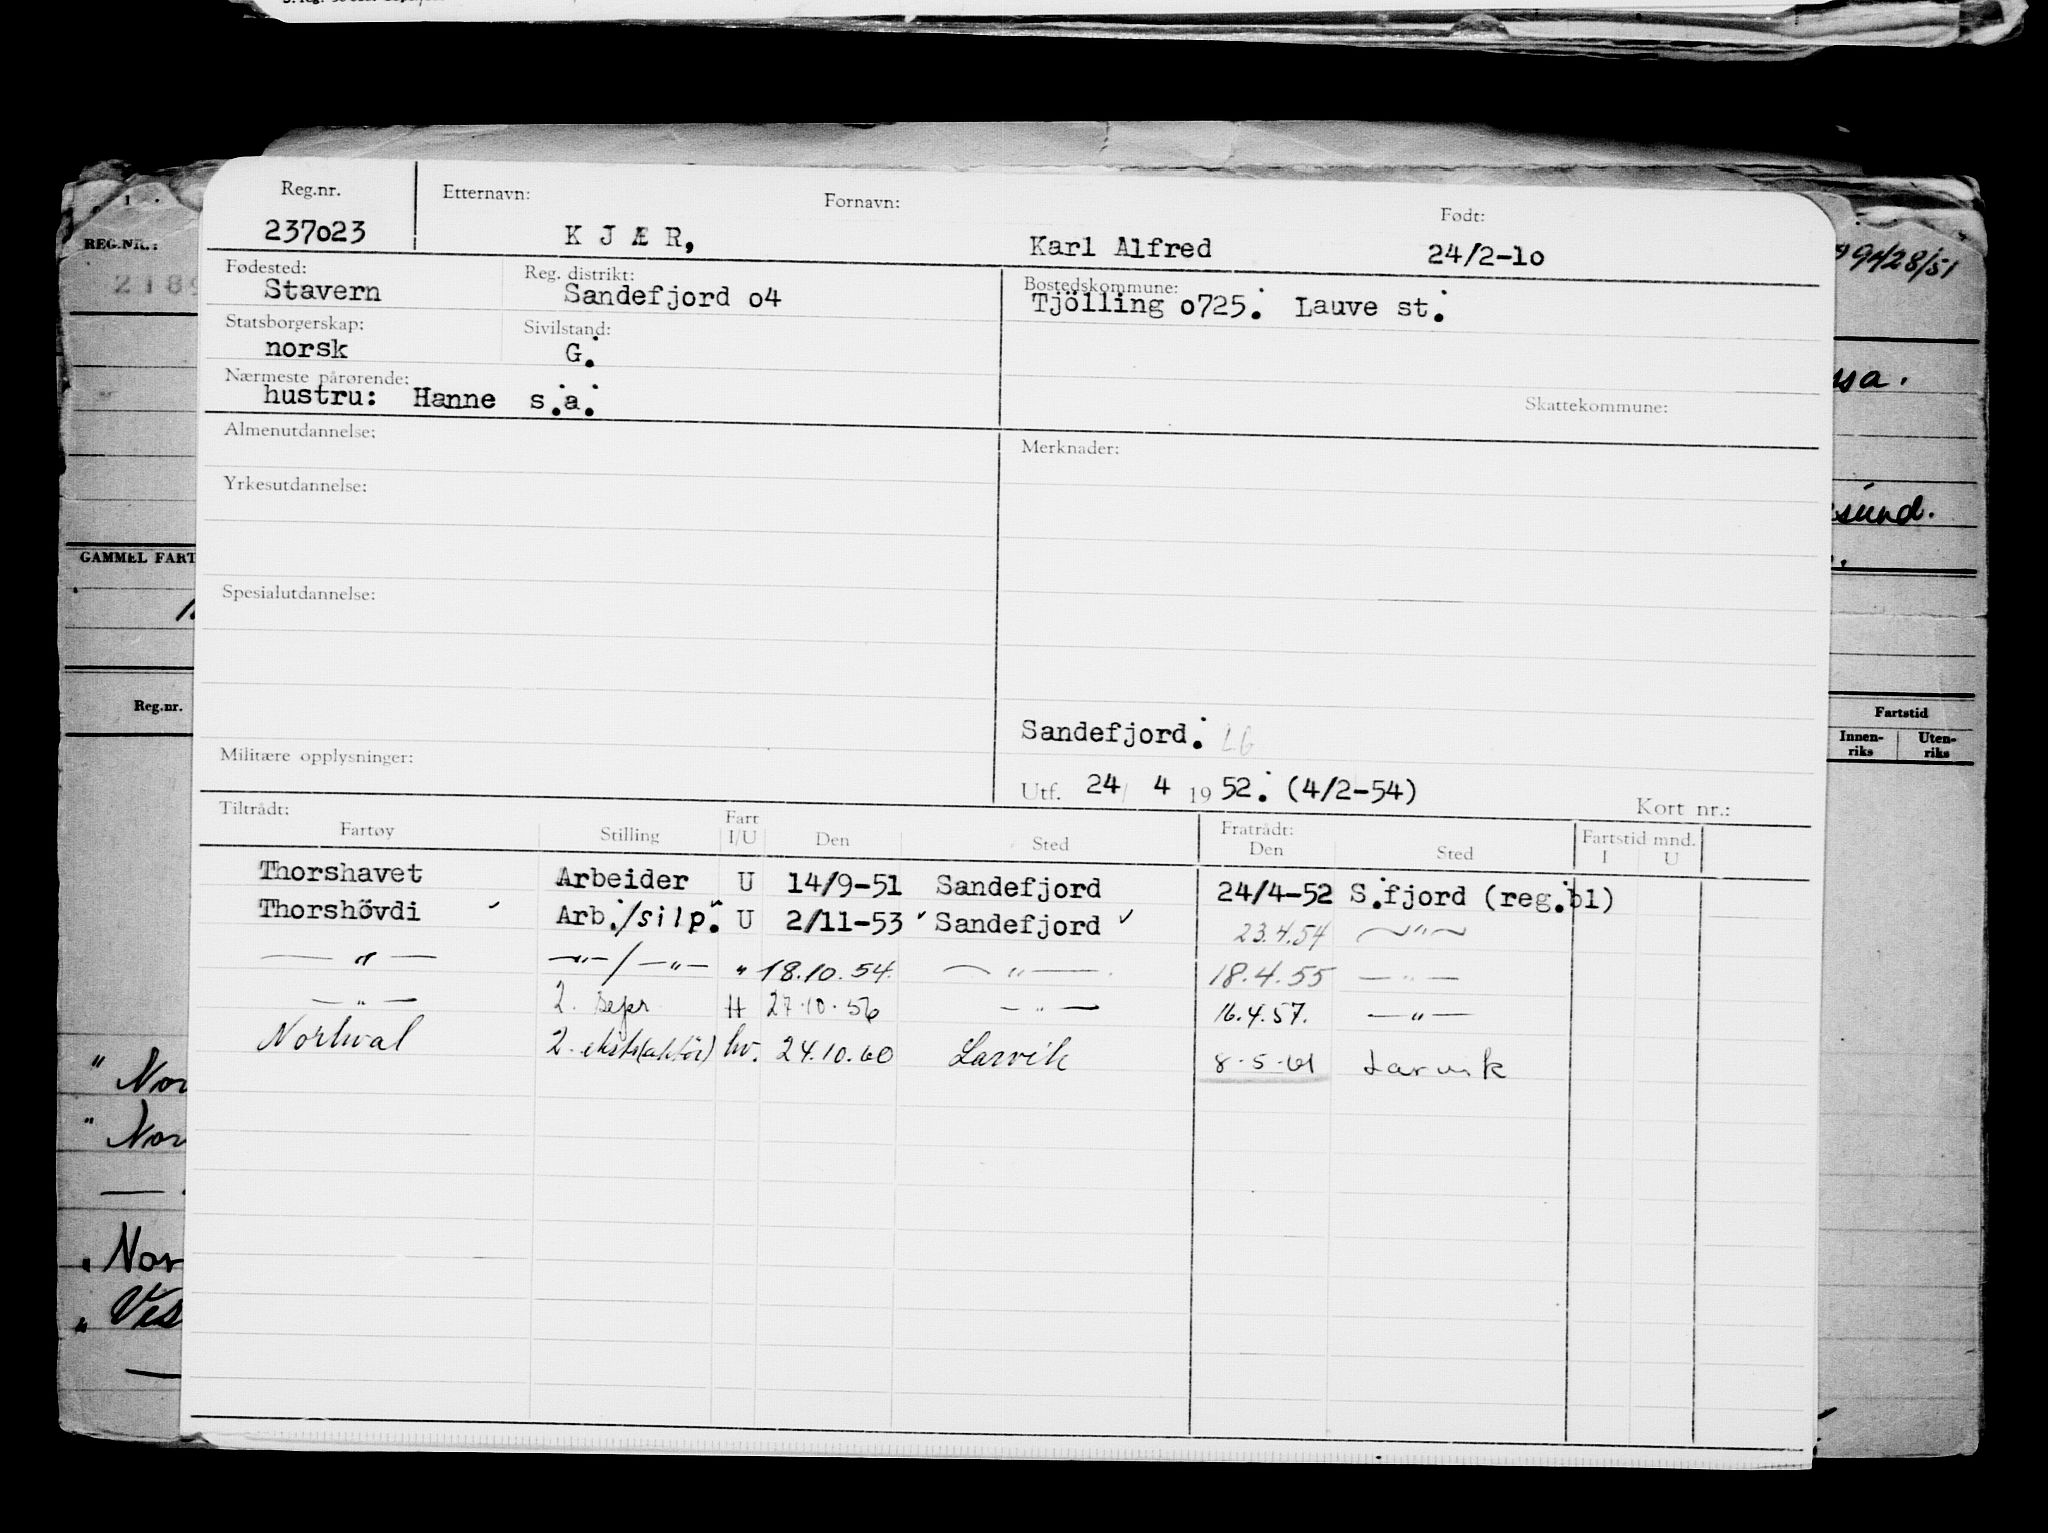 Reg.nr. Etternavn: Fornavn: Født:
237o23 K J Æ R, Karl Alfred 24/2-1o
REG.NR.: 9428/51
Fødested: Reg. distrikt: Bostedskommune:
Stavern Sandefjord o4 Tjölling o725. Lauve st.
Statsborgerskap: Sivilstand:
norsk G.
Nærmeste pårørende:
hustru: Hanne s.a.
Skattekommune:
Almenutdannelse: Merknader:
Yrkesutdannelse:
sund.
GAMMEL FART
Spesialutdannelse:
Reg.nr. Fartstid
Innen-riks Uten-riks
Sandefjord. LG
Militære opplysninger:
Utf. 24/ 4 19 52. (4/2-54)
Tiltrådt: Kort nr.:
Fartøy Stilling Fart I/U Den Sted Fratrådt: Den Sted Fartstid mnd. I U
Thorshavet Arbeider U 14/9-51 Sandefjord 24/4-52 S.fjord (reg.bl)
Thorshövdi ✓ Arb./silp. U 2/11-53 ✓ Sandefjord ✓ 23.4.54 —"—
— " — —"—/—"— " 18.10.54. — " — 18.4.55 — " —
— " — 2. sepr. H 27.10.56 — " — 16.4.57. —"—
Norhval 2. hv. 24.10.60 Larvik 8-5-61 Larvik
" Nor
" Nor
—
" Nor
" Ves
—